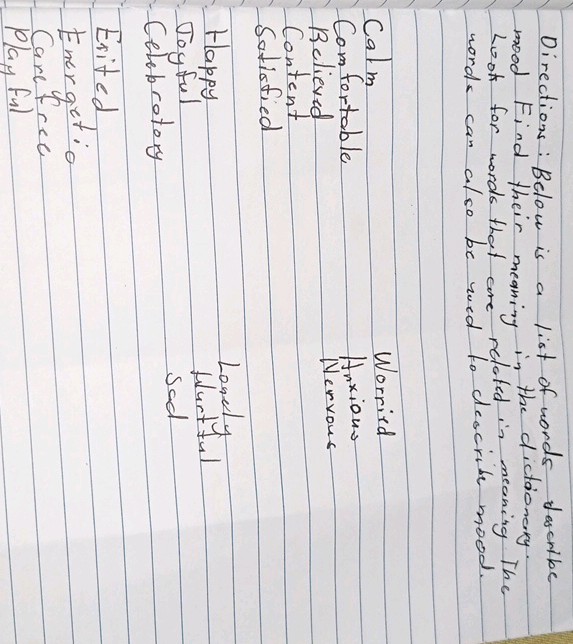 Directions: Below is a list of words describe
mood Find their meaning in the dictionary.
Look for words that are related in meaning The
words can also be used to describe mood.
Calm Worried
Comfortable Anxious
Relieved Nervous
Content
Satisfied
Happy Lonely
Joyful Hurtful
Celebratory Sad
Exited
Energetic
Carefree
Playful